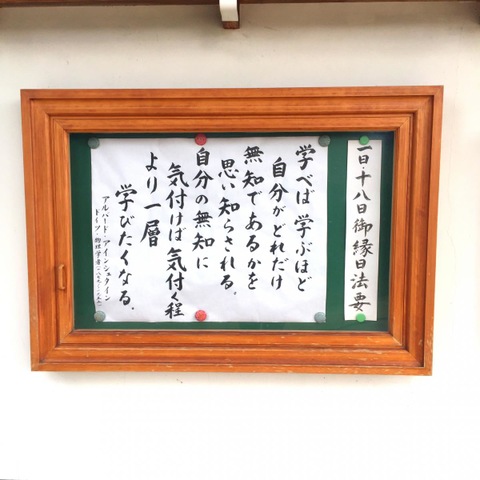 一日・十八日御縁日法要
学べば学ぶほど
自分がどれだけ
無知であるかを
思い知らされる。
自分の無知に
気付けば気付く程
より一層
学びたくなる。
アルバード・アインシュタイン
ドイツ・物理学者